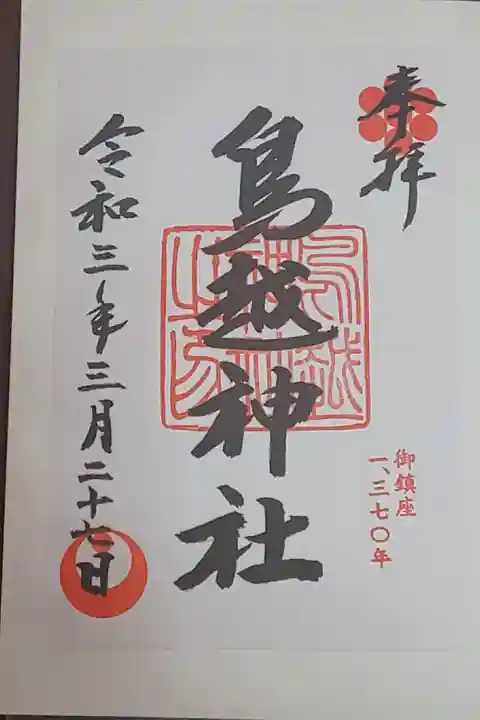 奉拝
鳥越神社
御鎮座
一、三七〇年
令和三年三月二十七日